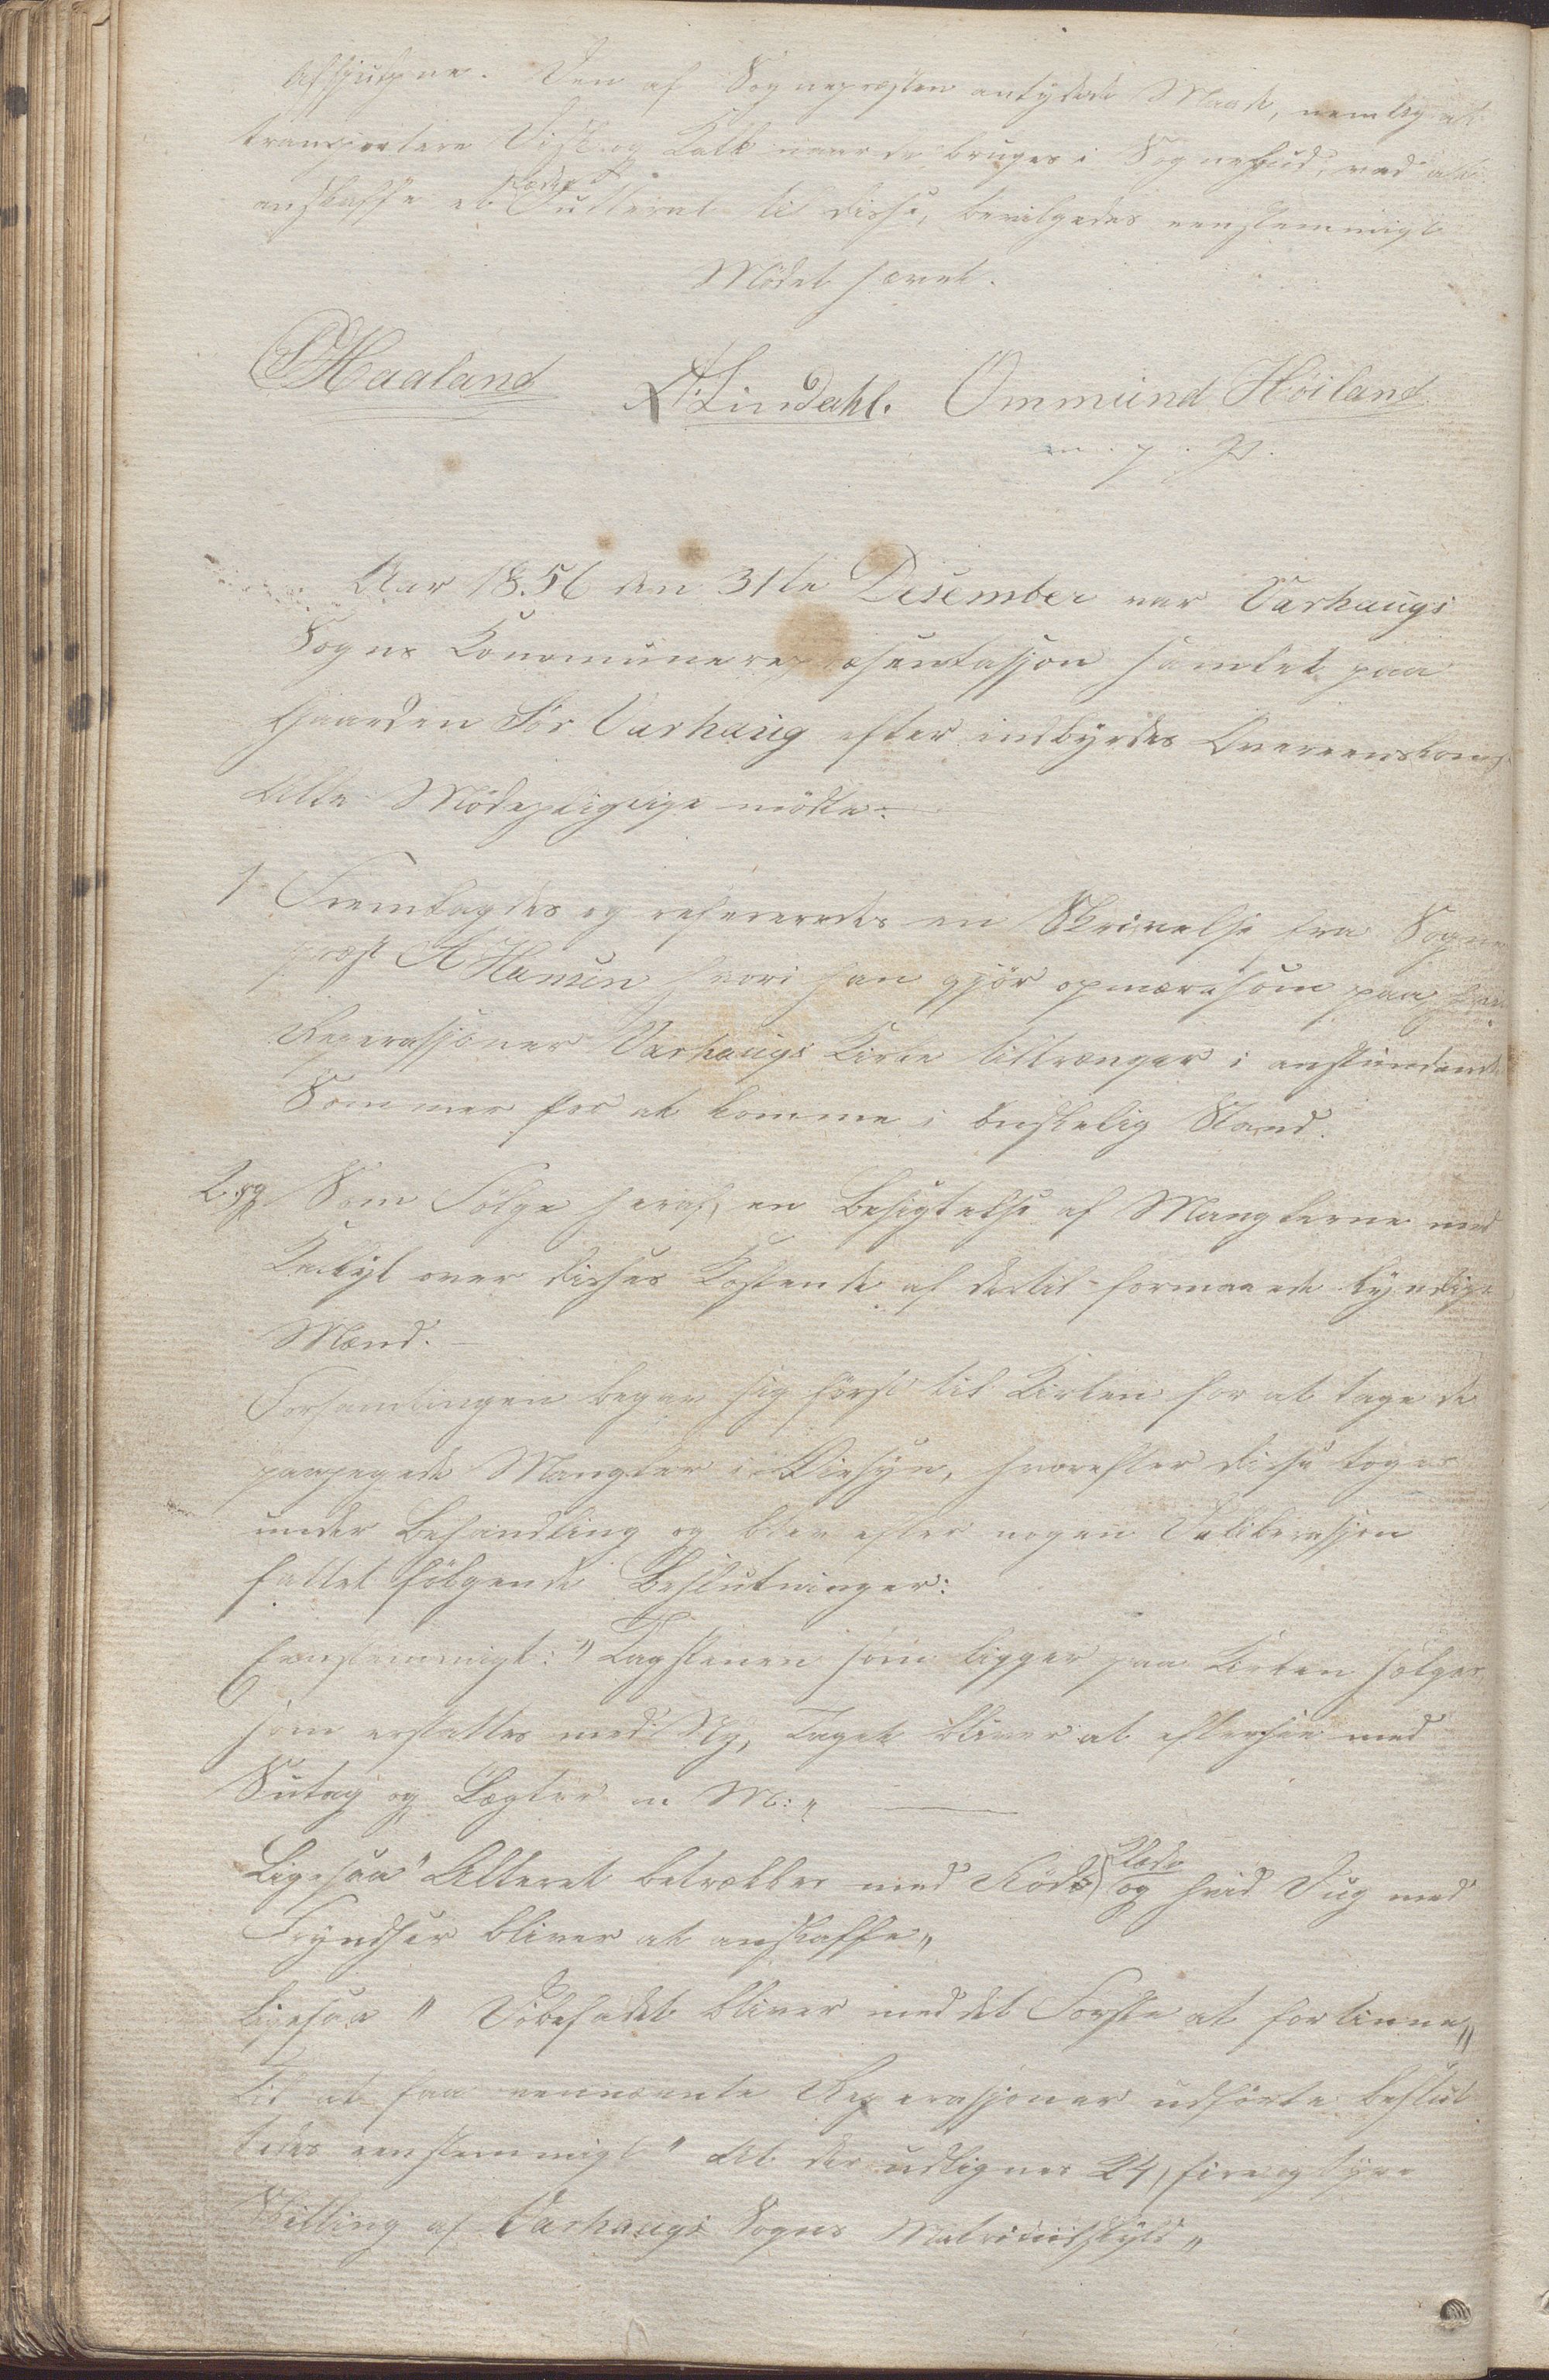 afhjulpne. Den af Sognepræsten antydede Maade, nemlig at
transportere Disk og Kalk naar de bruges i Sognebud, ved at
anskaffe et Futteral til disse, bevilgedes eenstemmigt
Mödet hævet.
Haaland A Lindahl. Ommund Höiland
m. p. P.
Aar 1856 den 31te Desember var Varhaugs
Sogns Kommunerepræsentasjon samlet paa
Gaarden Sör Varhaug efter indbyrdes Overeenskomst
Alle Mödepligtige mödte.
1 Fremlagdes og refereredes en Skrivelse fra Sogne
præst A Hansen hvori han gjör opmærksom paa
Reparasjoner Varhaugs Kirke tiltrænger i anstundende
Sommer for at komme i önskelig Stand.
Som Fölge heraf, en Besigtelse af Manglerne med
over disses Kostende af dertil formaaede kyndige
Mænd.
Forsamlingen begav sig först til Kirken for at tage de
paapegede Mangler i Öiesyn, hvorefter disse toges
under Behandling og blev efter nogen Deliberasjon
fattet fölgende Beslutninger:
Eenstemmigt: "Tagstenen som ligger paa Kirken sælges
som erstattes med Ny, Taget bliver at efterse med
Sutag og Lægter m M: "
Ligesaa " Alteret betrækkes med Rödt Klæde og hvid Dug med
Fryndser bliver at anskaffe "
Ligesaa " Döbefadet bliver med det Förste at fortinne "
Til at faa nævnte Reparasjoner udförte beslut
tedes eenstemmigt " At der udlignes 24, fire og tyve
Skilling af Varhaugs Sogns Matrikulskyld "